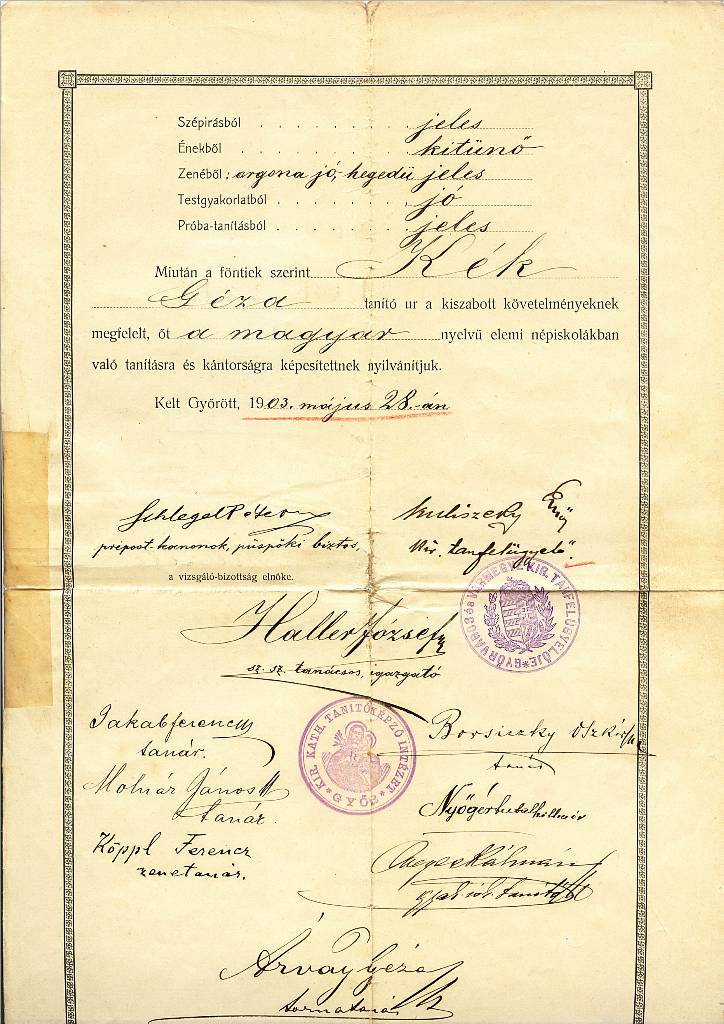 Szépirásból . . . . . . . jeles
Énekből . . . . . . . kitünő
Zenéből: orgona jó, hegedü jeles
Testgyakorlatból . . . . . . jó
Próba-tanításból . . . . . jeles
Miután a föntiek szerint Kék
Géza tanító ur a kiszabott követelményeknek
megfelelt, őt a magyar nyelvü elemi népiskolákban
való tanításra és kántorságra képesítettnek nyilvánítjuk.
Kelt Győrött, 1903. május 28.-án
Schlegel Péter
prépost-kanonok, püspöki biztos,
a vizsgáló-bizottság elnöke.
Ernő
kir. tanfelügyelő.
GYŐR VÁROS ÉS VÁRMEGYE KIR. TANFELÜGYELŐJE
Haller József
sz. sz. tanácsos, igazgató
KIR. KATH. TANITÓKÉPZŐ INTÉZET
GYŐR
Jakab ferenc
tanár.
Molnár János
tanár.
Köppl Ferencz
zenetanár.
Borsiczky
tanár
Kálmán
Árvay Géza
tornatanár